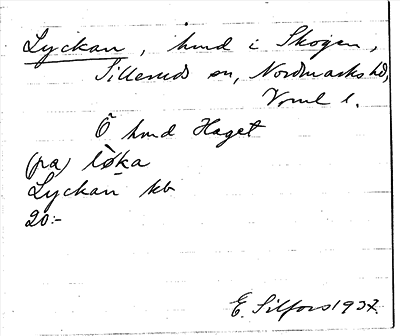 Lyckan, hmd i Skogen,
Silleruds sn, Nordmarks hd,
Vrml l.
Ö hmd Haget
(pa) lø̄ka
Lyckan kb
20:-
E. Silfors 1937